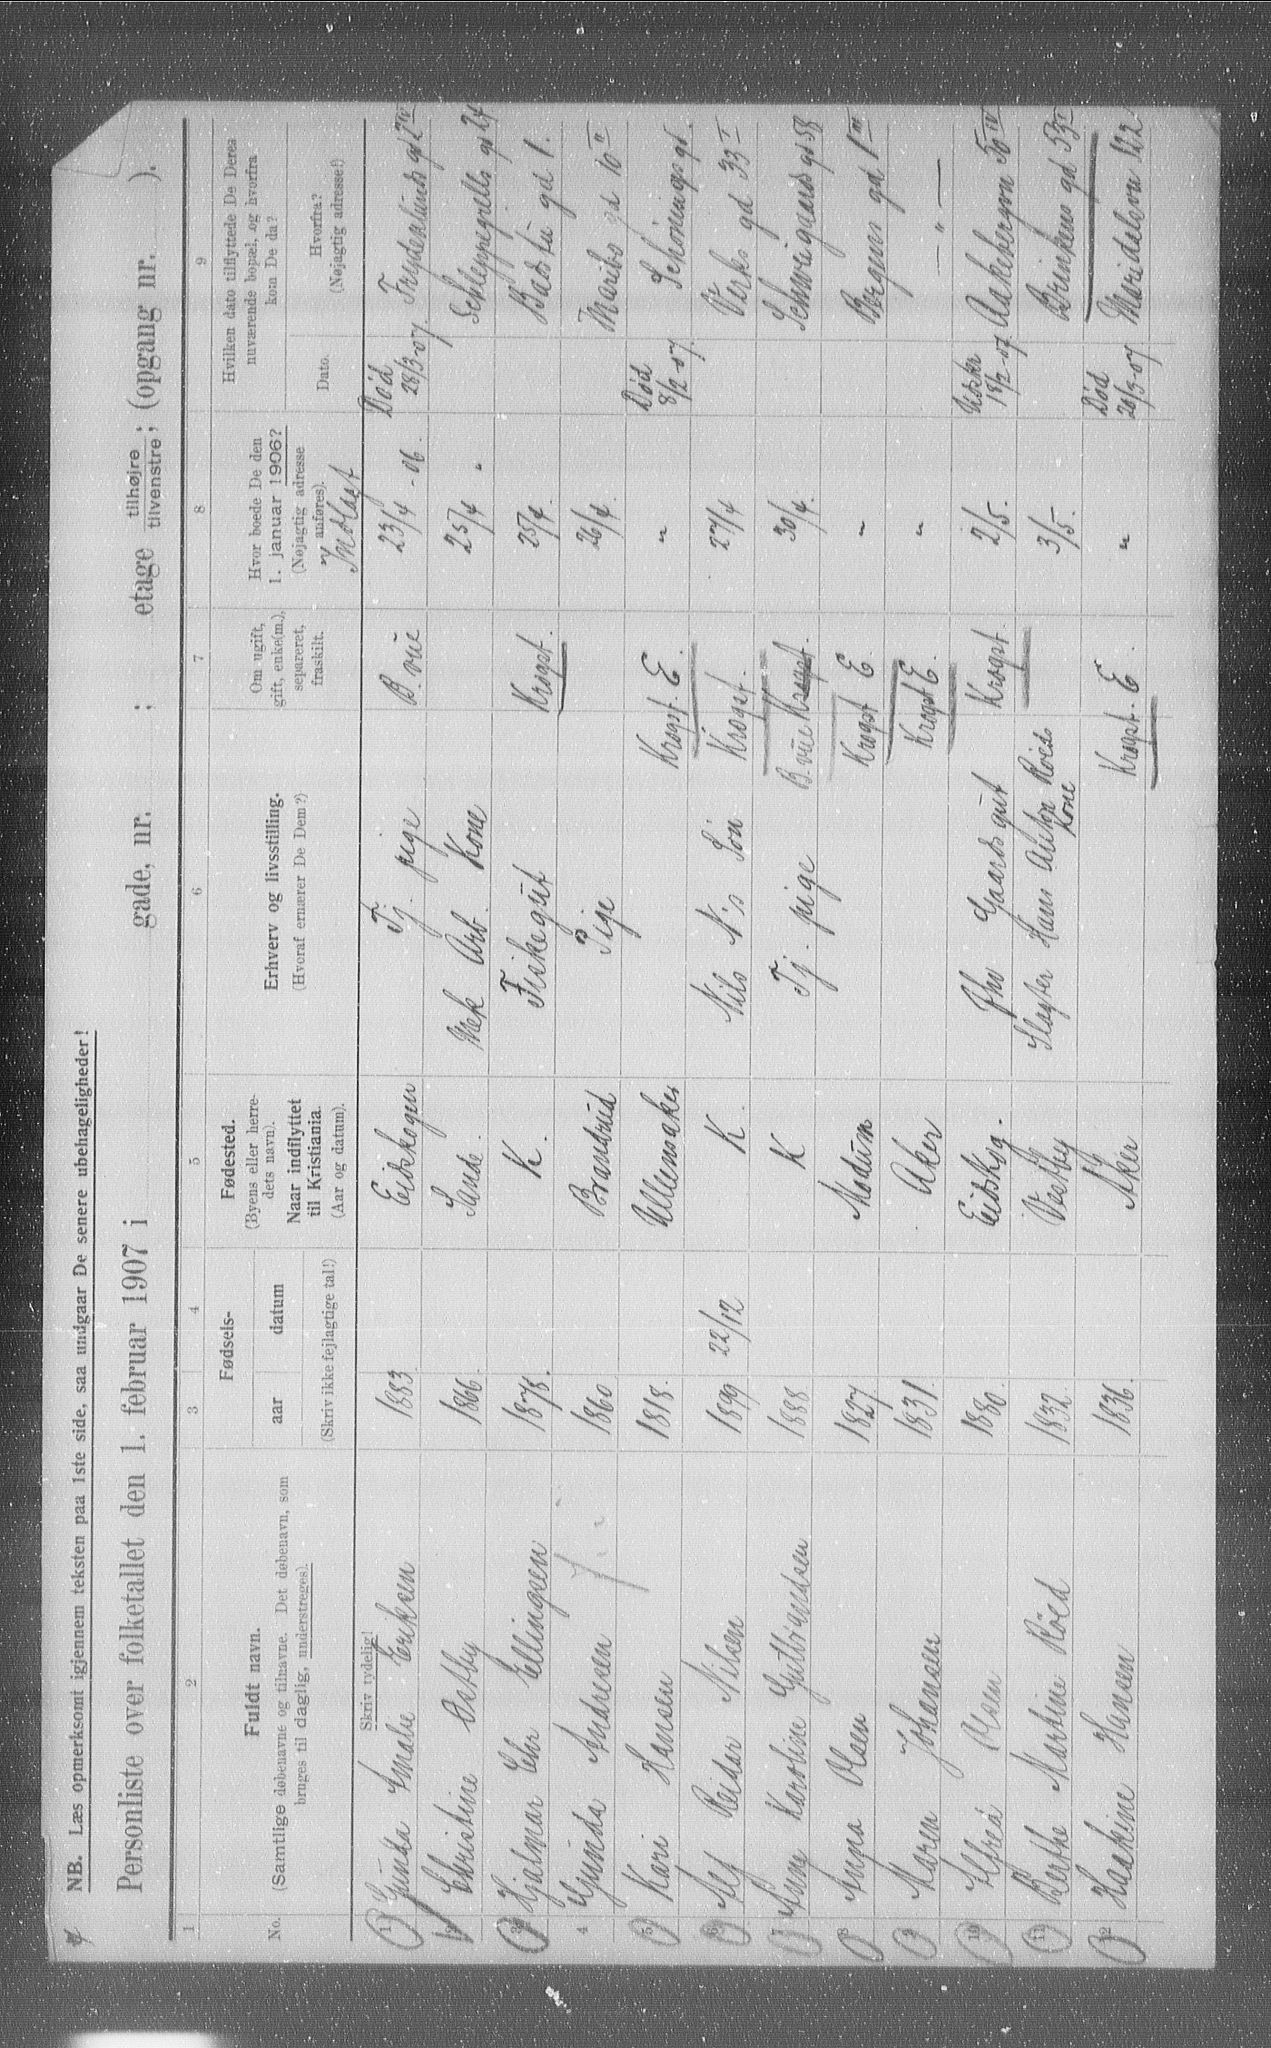 NB. Læs opmerksomt igjennem teksten paa 1ste side, saa undgaar De senere ubehageligheder!
Personliste over folketallet den 1. februar 1907 i gade, nr. ; etage tilhøjre tilvenstre; (opgang nr. ).
1 2 3 4 5 6 7 8 9
No.
Fuldt navn.
(Samtlige døbenavne og tilnavne. Det døbenavn, som
bruges til daglig, understreges).
Skriv tydelig!
Fødsels-
aar datum
(Skriv ikke fejlagtige tal!)
Fødested.
(Byens eller herre-
dets navn).
Naar indflyttet
til Kristiania.
(Aar og datum).
Erhverv og livsstilling.
(Hvoraf ernærer De Dem?)
Om ugift,
gift, enke(m.),
separeret,
fraskilt.
Hvor boede De den
1. januar 1906?
(Nøjagtig adresse
anføres).
Indlagt
Hvilken dato tilflyttede De Deres
nuværende bopæl, og hvorfra
kom De da?
Dato.
Hvorfra?
(Nøjagtig adresse!)
1 Gunda Amalie Eriksen 1883. Eidskogen Tj. pige B. vie 23/4 - 06. Død 28/3-07.
2 Christine Østby 1866. Sande. Mek Arb. Kone 25/4 " Schleppegrells gd 24
3 Hjalmar Chr Ellingsen 1878. K. Fiskegut Krogst. 25/4. Badstu gd 1.
4 Gunda Andresen 1860 Brandbu Pige 26/4. Maribo gd 10 II
5 Kari Hansen 1818. Ullensaker Krogst. E. " Død 8/2-07. Schønings gd.
6 Alf Reidar Nilsen 1899 22/12 K. Nils N's Søn Krogst. 27/4 Verks gd 33 I
7 Anne Karoline Gulbrandsen 1888 K Tj. pige B. vie Krogst. 30/4. Schweigaards gd 58
8 Anna Olsen 1827 Modum Krogst E. " Borgens gd 1 III
9 Maren Johansen 1831. Aker Krogst E. " — " —
10 Olsen 1880. Eidskog. Gaardsgut Krogst. 2/5. 18/2-07. Aakebergvn 50 IV
11 Berthe Martine Röed 1832. Vestby Slagter Hans Anton Röeds Kone 3/5. Brinkens gd 53 I
12 Haakine Hansen 1836. Aker Krogst. E. " Død 20/3-07 Maridalsvn 122